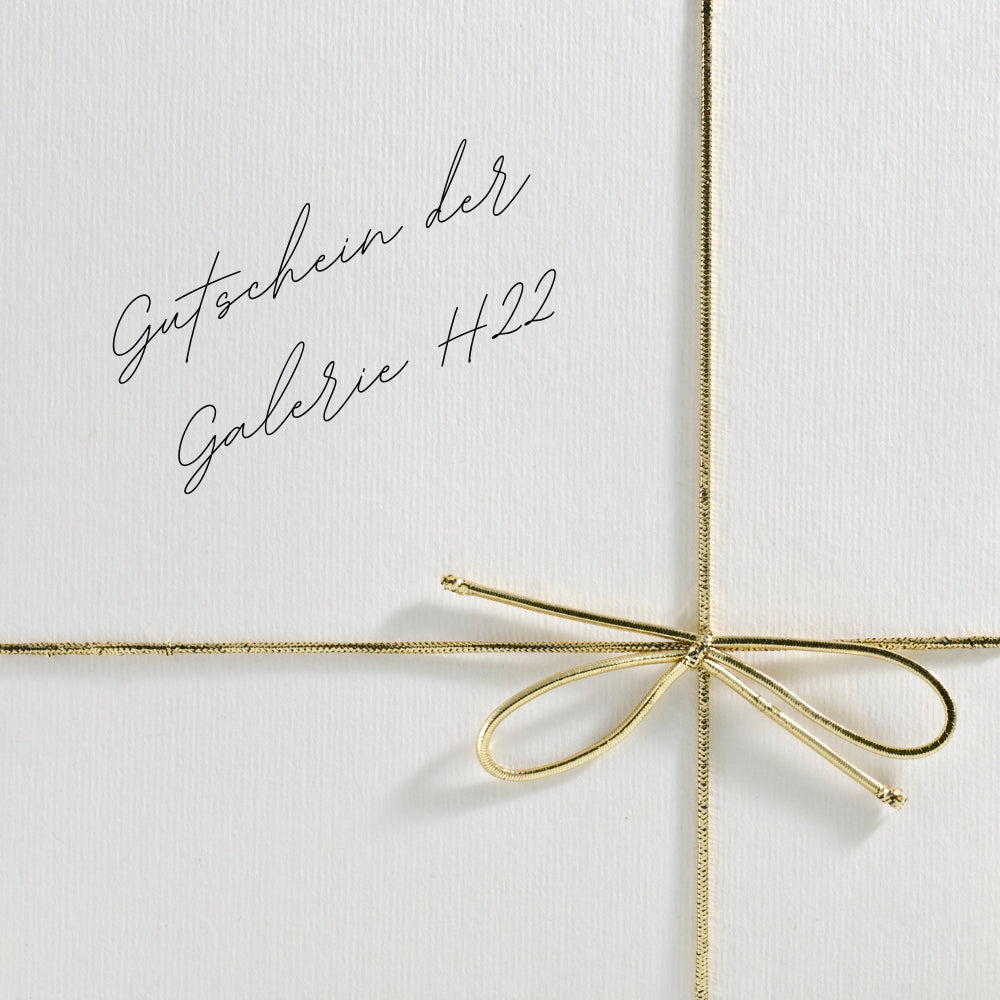 Gutschein der
Galerie H22